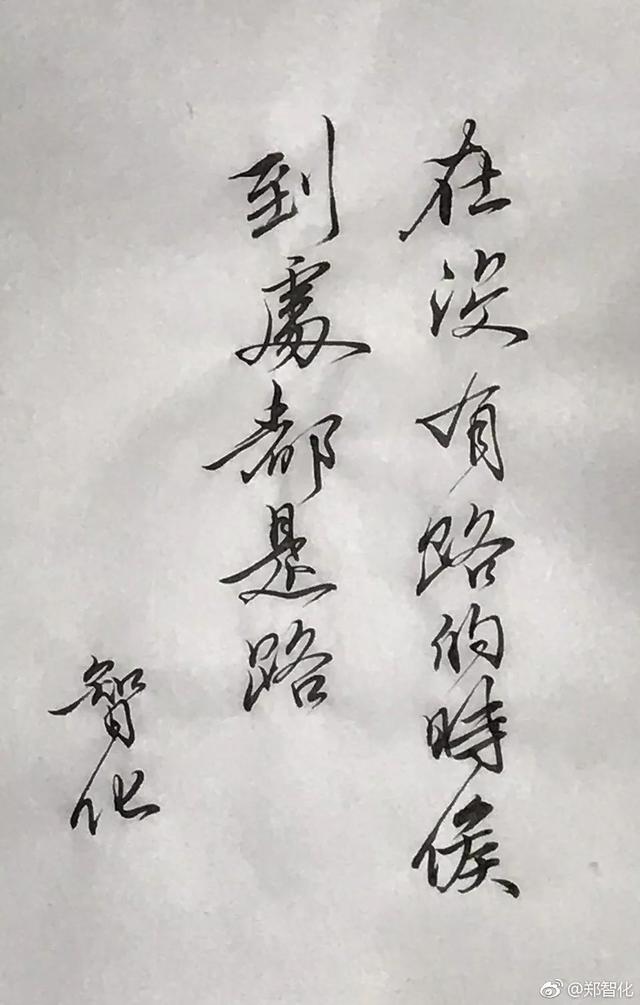 在没有路的時候
到處都是路
智化
@郑智化